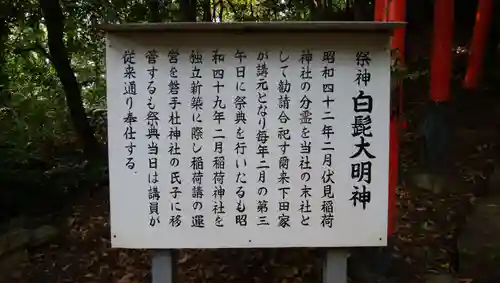 祭神 白髭大明神
昭和四十二年二月伏見稲荷
神社の分霊を当社の末社と
して勧請合祀す爾来下田家
が講元となり毎年二月の第三
午日に祭典を行いたるも昭
和四十九年二月稲荷神社を
独立新築に際し稲荷講の運
営を磐手杜神社の氏子に移
管するも祭典当日は講員が
従来通り奉仕する.